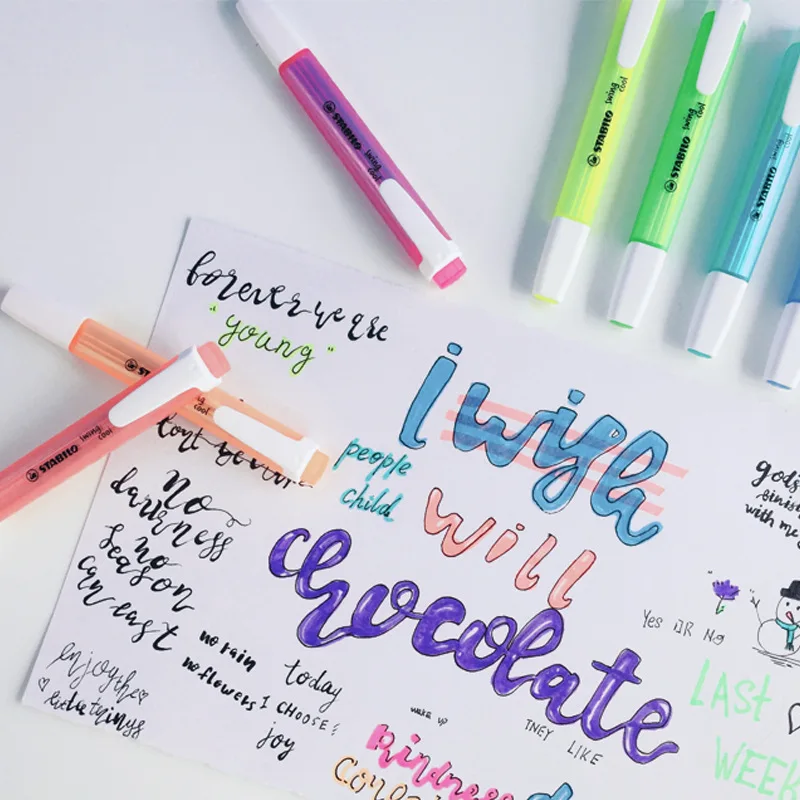 STABILO swing cool
STABILO swing cool
STABILO swing cool
STABILO swing cool
STABILO swing cool
forever we are
"young"
i wish
people
child
will
chocolate
no
darkness
no
season
can east
no rain
no flowers
enjoy the
little things
today
I CHOOSE
joy
wake up
THEY LIKE
kindness
Yes OR No
with me
LAST
WEEK